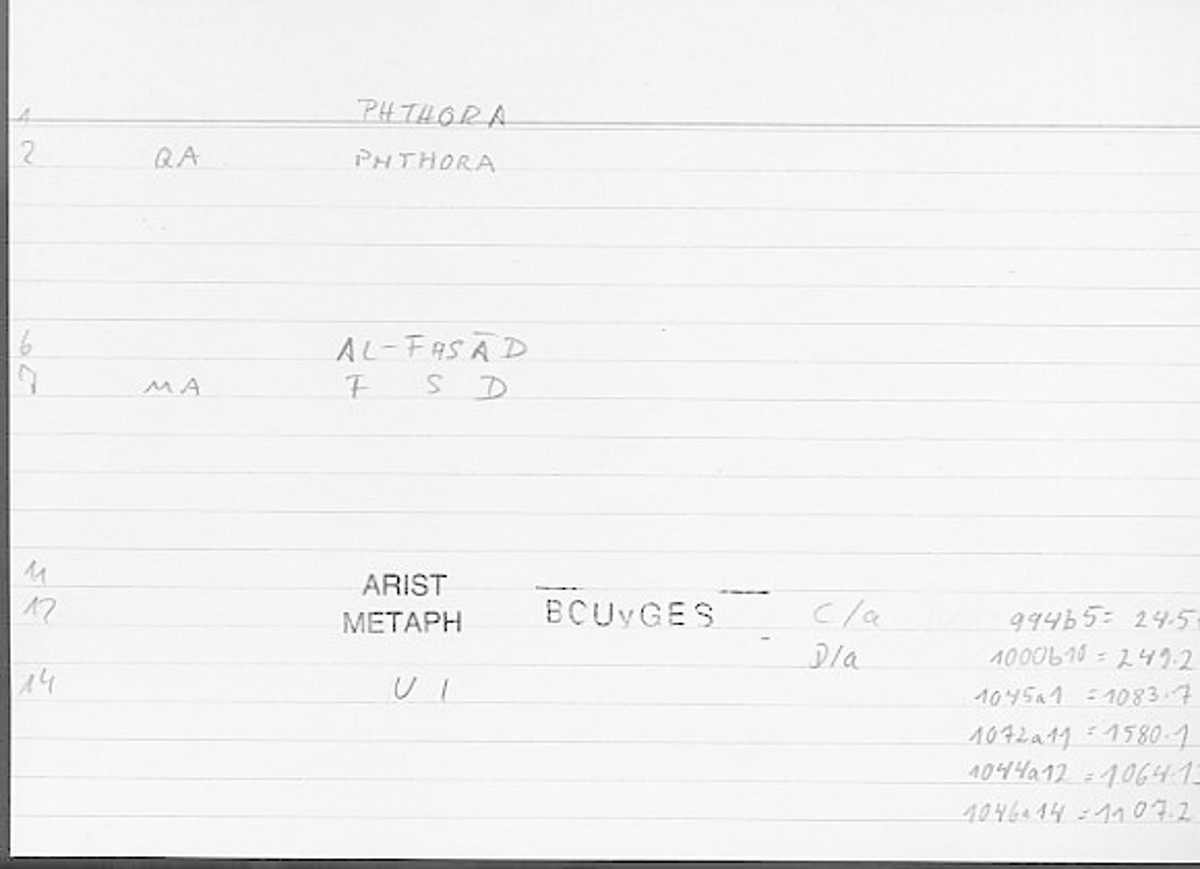 1 PHTHORA
2 QA PHTHORA
6 AL-FASĀD
7 MA F S D
11 ARIST
12 METAPH BCUvGES C/a 994b5= 24.5
D/a 1000b10 = 249.2
14 U I 1045a1 = 1083.7
1072a11 = 1580.1
1044a12 = 1064.13
1046a14 = 1107.2